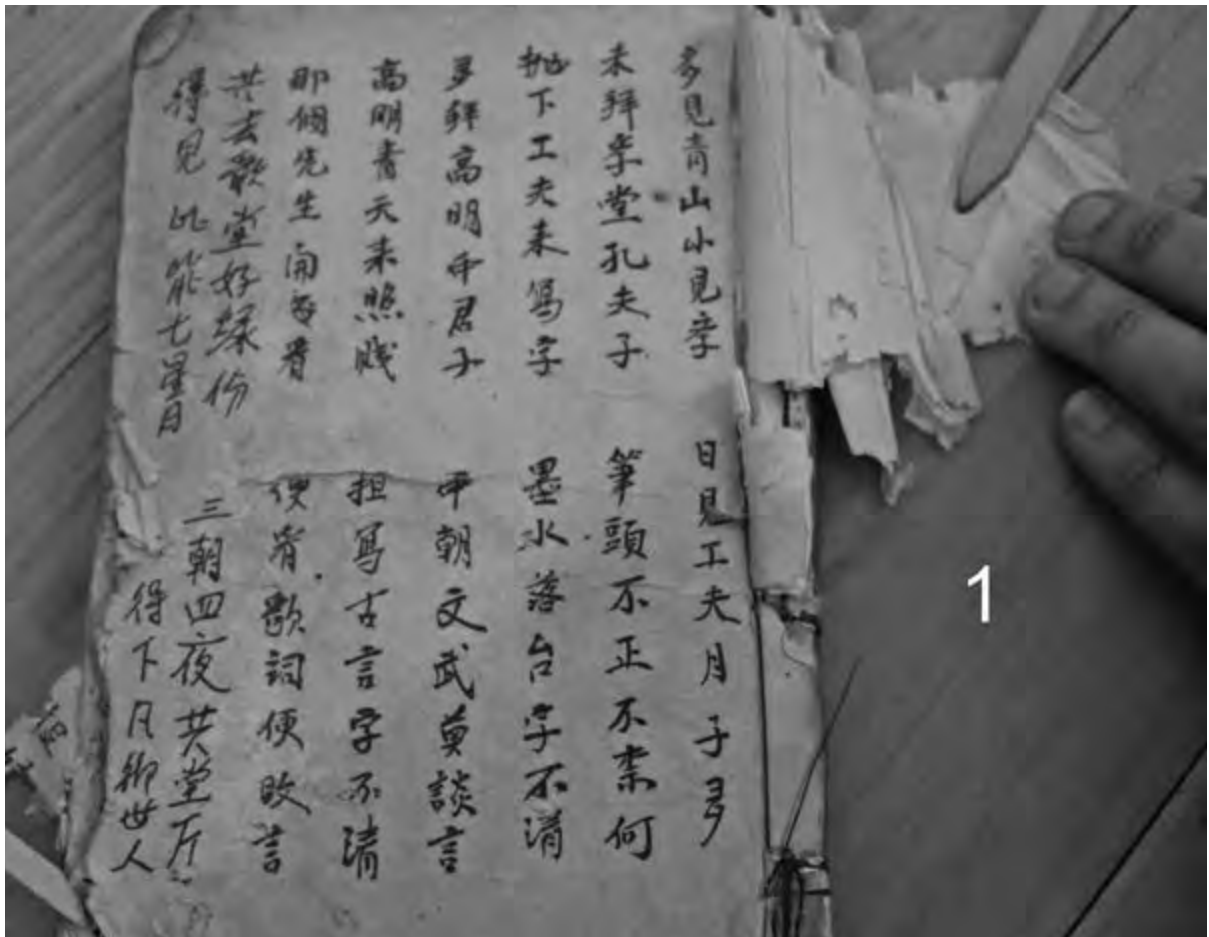 多見青山小見李 日見工夫月子多
未拜李堂孔夫子 筆頭不正不奈何
抛下工夫未寫字 墨水落台字不清
多拜高明中君子 中朝文武莫談言
高明青天来照 担寫古言字不清
那個先生開 看 便看歌詞便改言
共去歌堂好緣份 三朝四夜共堂
得見 七星月 得下凡 世人
1